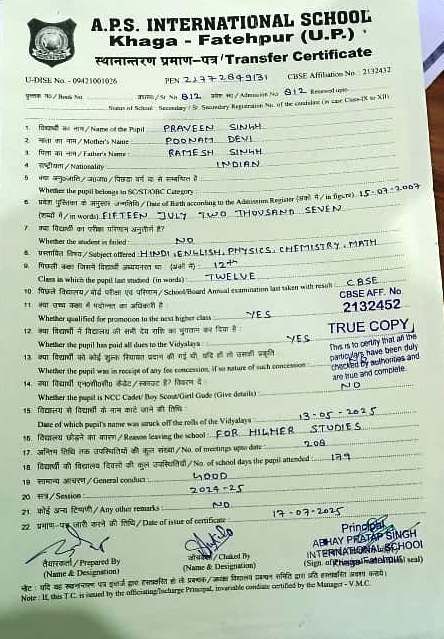 A.P.S. INTERNATIONAL SCHOOL
Khaga - Fatehpur (U.P.)
स्थानान्तरण प्रमाण-पत्र / Transfer Certificate
U-DISE No. - 09421001026 PEN 21772849131 CBSE Affiliation No. 2132432
पुस्तक न०/ Book No. क्रमांक / Sr No 812 प्रवेश सं०/ Admission No 812 Renewed upto
Status of School Secondary / Sr. Secondary Registration No. of the candidate (in case Class-IX to XII)
1. विद्यार्थी का नाम / Name of the Pupil PRAVEEN SINGH
2. माता का नाम / Mother's Name POONAM DEVI
3. पिता का नाम / Father's Name RAMESH SINGH
4. राष्ट्रीयता / Nationality INDIAN
5. क्या अनु०जाति / ज०जा० / पिछड़ा वर्ग से सम्बन्धित है
Whether the pupil belongs to SC/ST/OBC Category
6. प्रवेश पुस्तिका के अनुसार जन्मतिथि / Date of Birth according to the Admission Register (अंको में / in figure) 15-07-2007
(शब्दों में / in words) FIFTEEN JULY TWO THOUSAND SEVEN
7. क्या विद्यार्थी का परीक्षा परिणाम अनुत्तीर्ण है?
Whether the student is failed : NO
8. प्रस्तावित विषय / Subject offered : HINDI, ENGLISH, PHYSICS, CHEMISTRY, MATH
9. पिछली कक्षा जिसमें विद्यार्थी अध्ययनरत था (अंको में) : 12th
Class in which the pupil last studied (in words) : TWELVE
10. पिछले विद्यालय / बोर्ड परीक्षा एवं परिणाम / School/Board Annual examination last taken with result : CBSE
11. क्या उच्च कक्षा में पदोन्नत का अधिकारी है : CBSE AFF. No.
Whether qualified for promotion to the next higher class YES 2132452
12. क्या विद्यार्थी ने विद्यालय की सभी देय राशि का भुगतान कर दिया है :
Whether the pupil has paid all dues to the Vidyalaya : YES TRUE COPY
13. क्या विद्यार्थी को कोई शुल्क रियायत प्रदान की गई थी, यदि हाँ तो उसकी प्रकृति This is to certify that all the
Whether the pupil was in receipt of any fee concession, if so nature of such concession particulars have been duly
14. क्या विद्यार्थी एन०सी०सी० कैडेट / स्काउट है? विवरण दें : checked by authorities and
are true and complete.
Whether the pupil is NCC Cadet/ Boy Scout/Girl Guide (Give details) : NO
15. विद्यालय से विद्यार्थी के नाम काटे जाने की तिथि :
Date of which pupil's name was struck off the rolls of the Vidyalaya : 13-05-2025
16. विद्यालय छोड़ने का कारण / Reason leaving the school : FOR HILHER STUDIES
17. अन्तिम तिथि तक उपस्थितियों की कुल संख्या / No. of meetings upto date : 208
18. विद्यार्थी की विद्यालय दिवसों की कुल उपस्थितियाँ / No. of school days the pupil attended : 179
19. सामान्य आचरण / General conduct : GOOD
20. सत्र / Session : 2024-25
21. कोई अन्य टिप्पणी / Any other remarks : NO
22. प्रमाण-पत्र जारी करने की तिथि / Date of issue of certificate : 17-07-2025
Principal
ABHAY PRATAP SINGH
INTERNATIONAL SCHOOL
Khaga-Fatehpur
तैयारकर्ता / Prepared By
(Name & Designation)
जाँचकर्ता / Cheked By
(Name & Designation)
(Sign. of seal)
नोट : यदि यह स्थानान्तरण पत्र इंचार्ज द्वारा हस्ताक्षरित हो तो प्रबन्धक / अध्यक्ष विद्यालय प्रबन्धन समिति द्वारा प्रति हस्ताक्षरित अवश्य कराये।
Note : If, this T.C. is issued by the officiating/Incharge Principal, invariable condiate certified by the Manager - V.M.C.